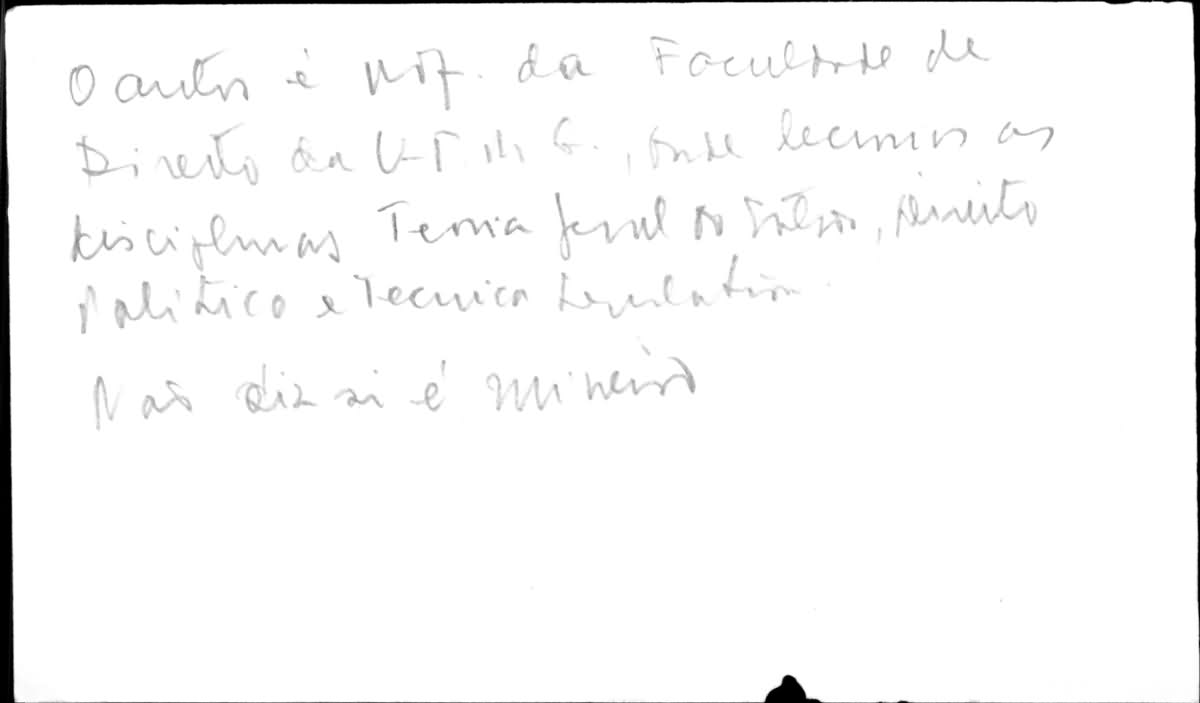 O autor é prof. da Faculdade de
Direito da U.F.M.G., onde leciona as
disciplinas Teoria Geral do Estado, Direito
Político e Tecnica Legislativa.
Não diz si é mineiro